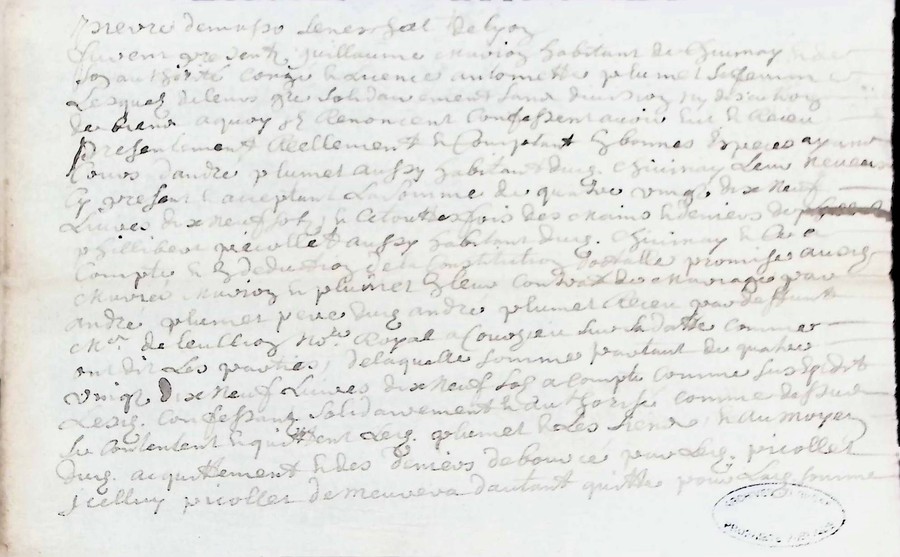 senechal de Lyon
present guillaume marion habitant de chiurnay
son authorité conge & licence antoinette plumet sa femme
Lesquelz de leurs gré solidairement sans division ny discution
de biens a quoy ilz Renoncent Confessent avoir eut & Receu
presentement Reellement & Comptant En bonnes Especes ayant
Cours d'andré plumet aussy habitant dud. chiurnay Leur
Cy present & acceptant La somme de quatre vingt dix neuf
Livres dix neuf solz & ce touttesfois des mains & deniers de
phillibert picollet aussy habitant dud. chiurnay &
Compte & En deduction de la Constitution dotalle promise ausd.
mariés marion & plumet En leur Contrat de mariage par
andré plumet pere dud. andré plumet Receu par deffunt
Me. de Royal a Courzieu sur sa datte comme
ont dit Les parties, de laquelle somme partant de quatre
vingt dix neuf Livres dix neuf solz a compte comme sus Est dit
Lesd. confessantz solidairement & authorisé comme dessus
Se Contentent & quittent Led. plumet & Les siens & au moyen
dud. acquittement & des deniers debourcé par Led. picollet
Icelluy picollet demeurera d'autant quitte pour Lad. somme